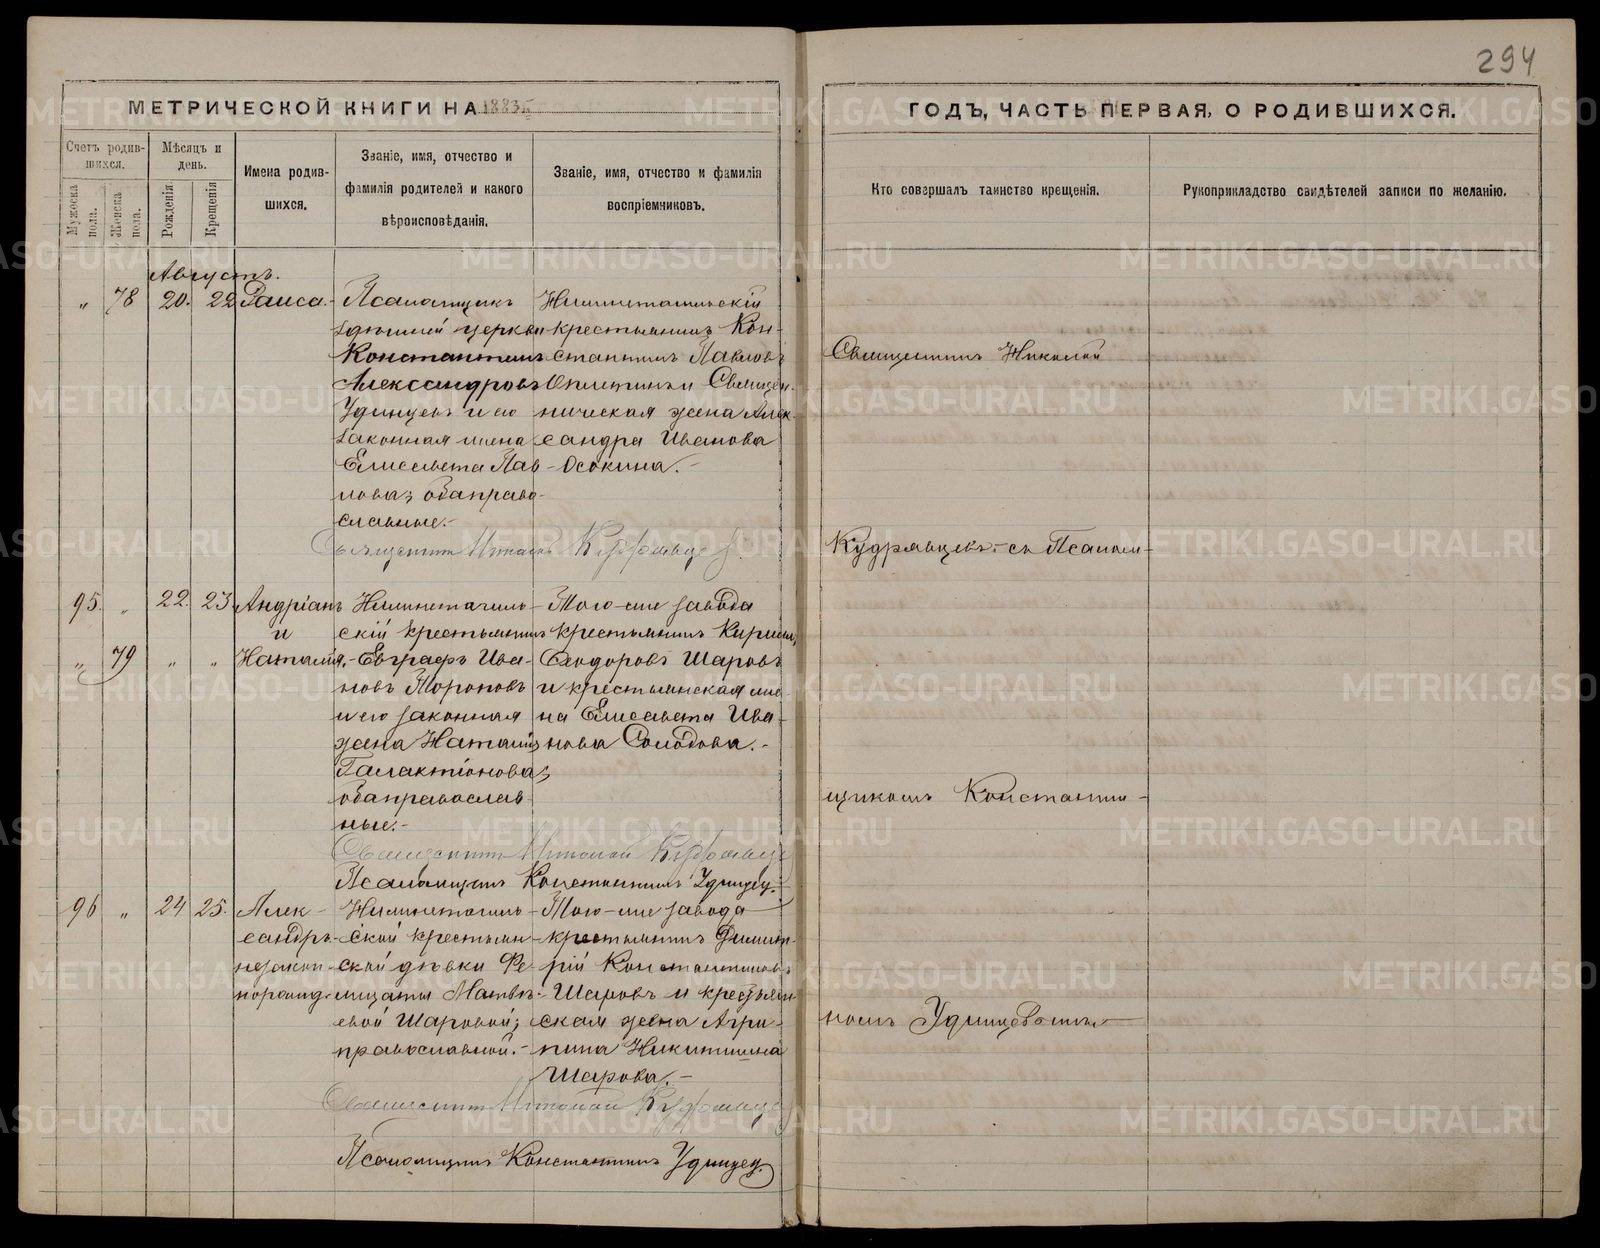 294
МЕТРИЧЕСКОЙ КНИГИ НА 1883й
ГОДЪ, ЧАСТЬ ПЕРВАЯ, О РОДИВШИХСЯ.
Счетъ родившихся.
Мужеска пола.
Женска пола.
Мѣсяцъ и день.
Рожденія.
Крещенія
Имена родившихся.
Званіе, имя, отчество и фамилія родителей и какого вѣроисповѣданія.
Званіе, имя, отчество и фамилія воспріемниковъ.
Кто совершалъ таинство крещенія.
Рукоприкладство свидѣтелей записи по желанію.
Августъ.
„ 78 20. 22 Раиса.
Псаломщикъ
здѣшней церкви
Константинъ
Александровъ
Удинцевъ и его
законная жена
Елисавета Пав-
лова; оба право-
славные.-
Нижнетагильскій
крестьянинъ Кон-
стантинъ Павловъ
и Священ-
ническая жена Алек-
сандра Иванова
Осокина.-
Священникъ Николай Кудрявцевъ
95. „ 22. 23 Андріанъ
и
„ 79 „ „ Наталія.-
Нижнетагиль-
скій крестьянинъ
Евграфъ Ива-
новъ Тороповъ
и его законная
жена Наталія
Галактіонова;
оба православ-
ные.-
Того-же завода
крестьянинъ Кирилъ
Ѳеодоровъ Шаровъ
и крестьянская же-
на Елисавета Ива-
нова Солодова.-
Священникъ Николай Кудрявцевъ
Псаломщикъ Константинъ Удинцевъ
96 „ 24 25. Алек-
сандръ
незакон-
норожд.
Нижнетагиль-
ской крестьян-
ской дѣвки Ѳе-
Матвѣ-
евой Шаровой;
православной.-
Того-же завода
крестьянинъ Димит-
рій Константиновъ
Шаровъ и крестьян-
ская жена Агри-
пина Никитина
Шарова.-
Священникъ Николай Кудрявцевъ
Псаломщикъ Константинъ Удинцевъ
Священникъ Николай
Кудрявцевъ-съ Псалом-
щикомъ Константи-
номъ Удинцевымъ.
METRIKI.GASO-URAL.RU